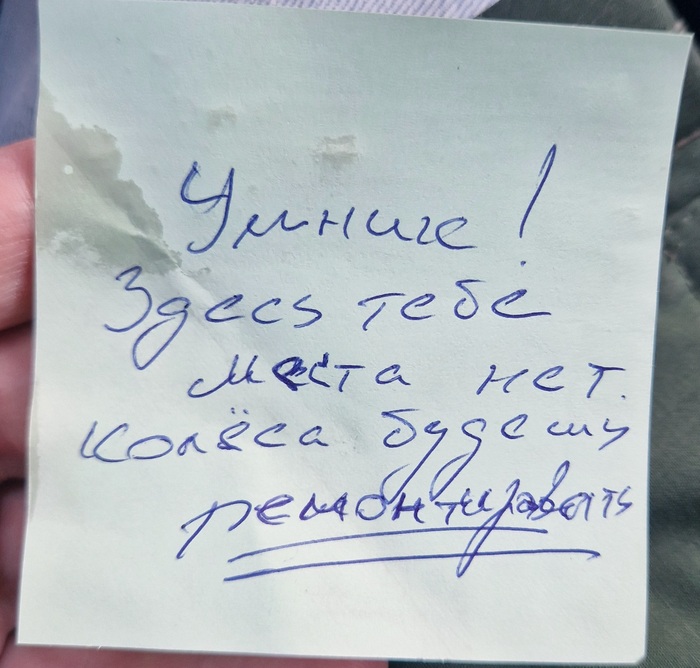 Умник!
Здесь тебе
места нет.
Колёса будешь
ремонтировать